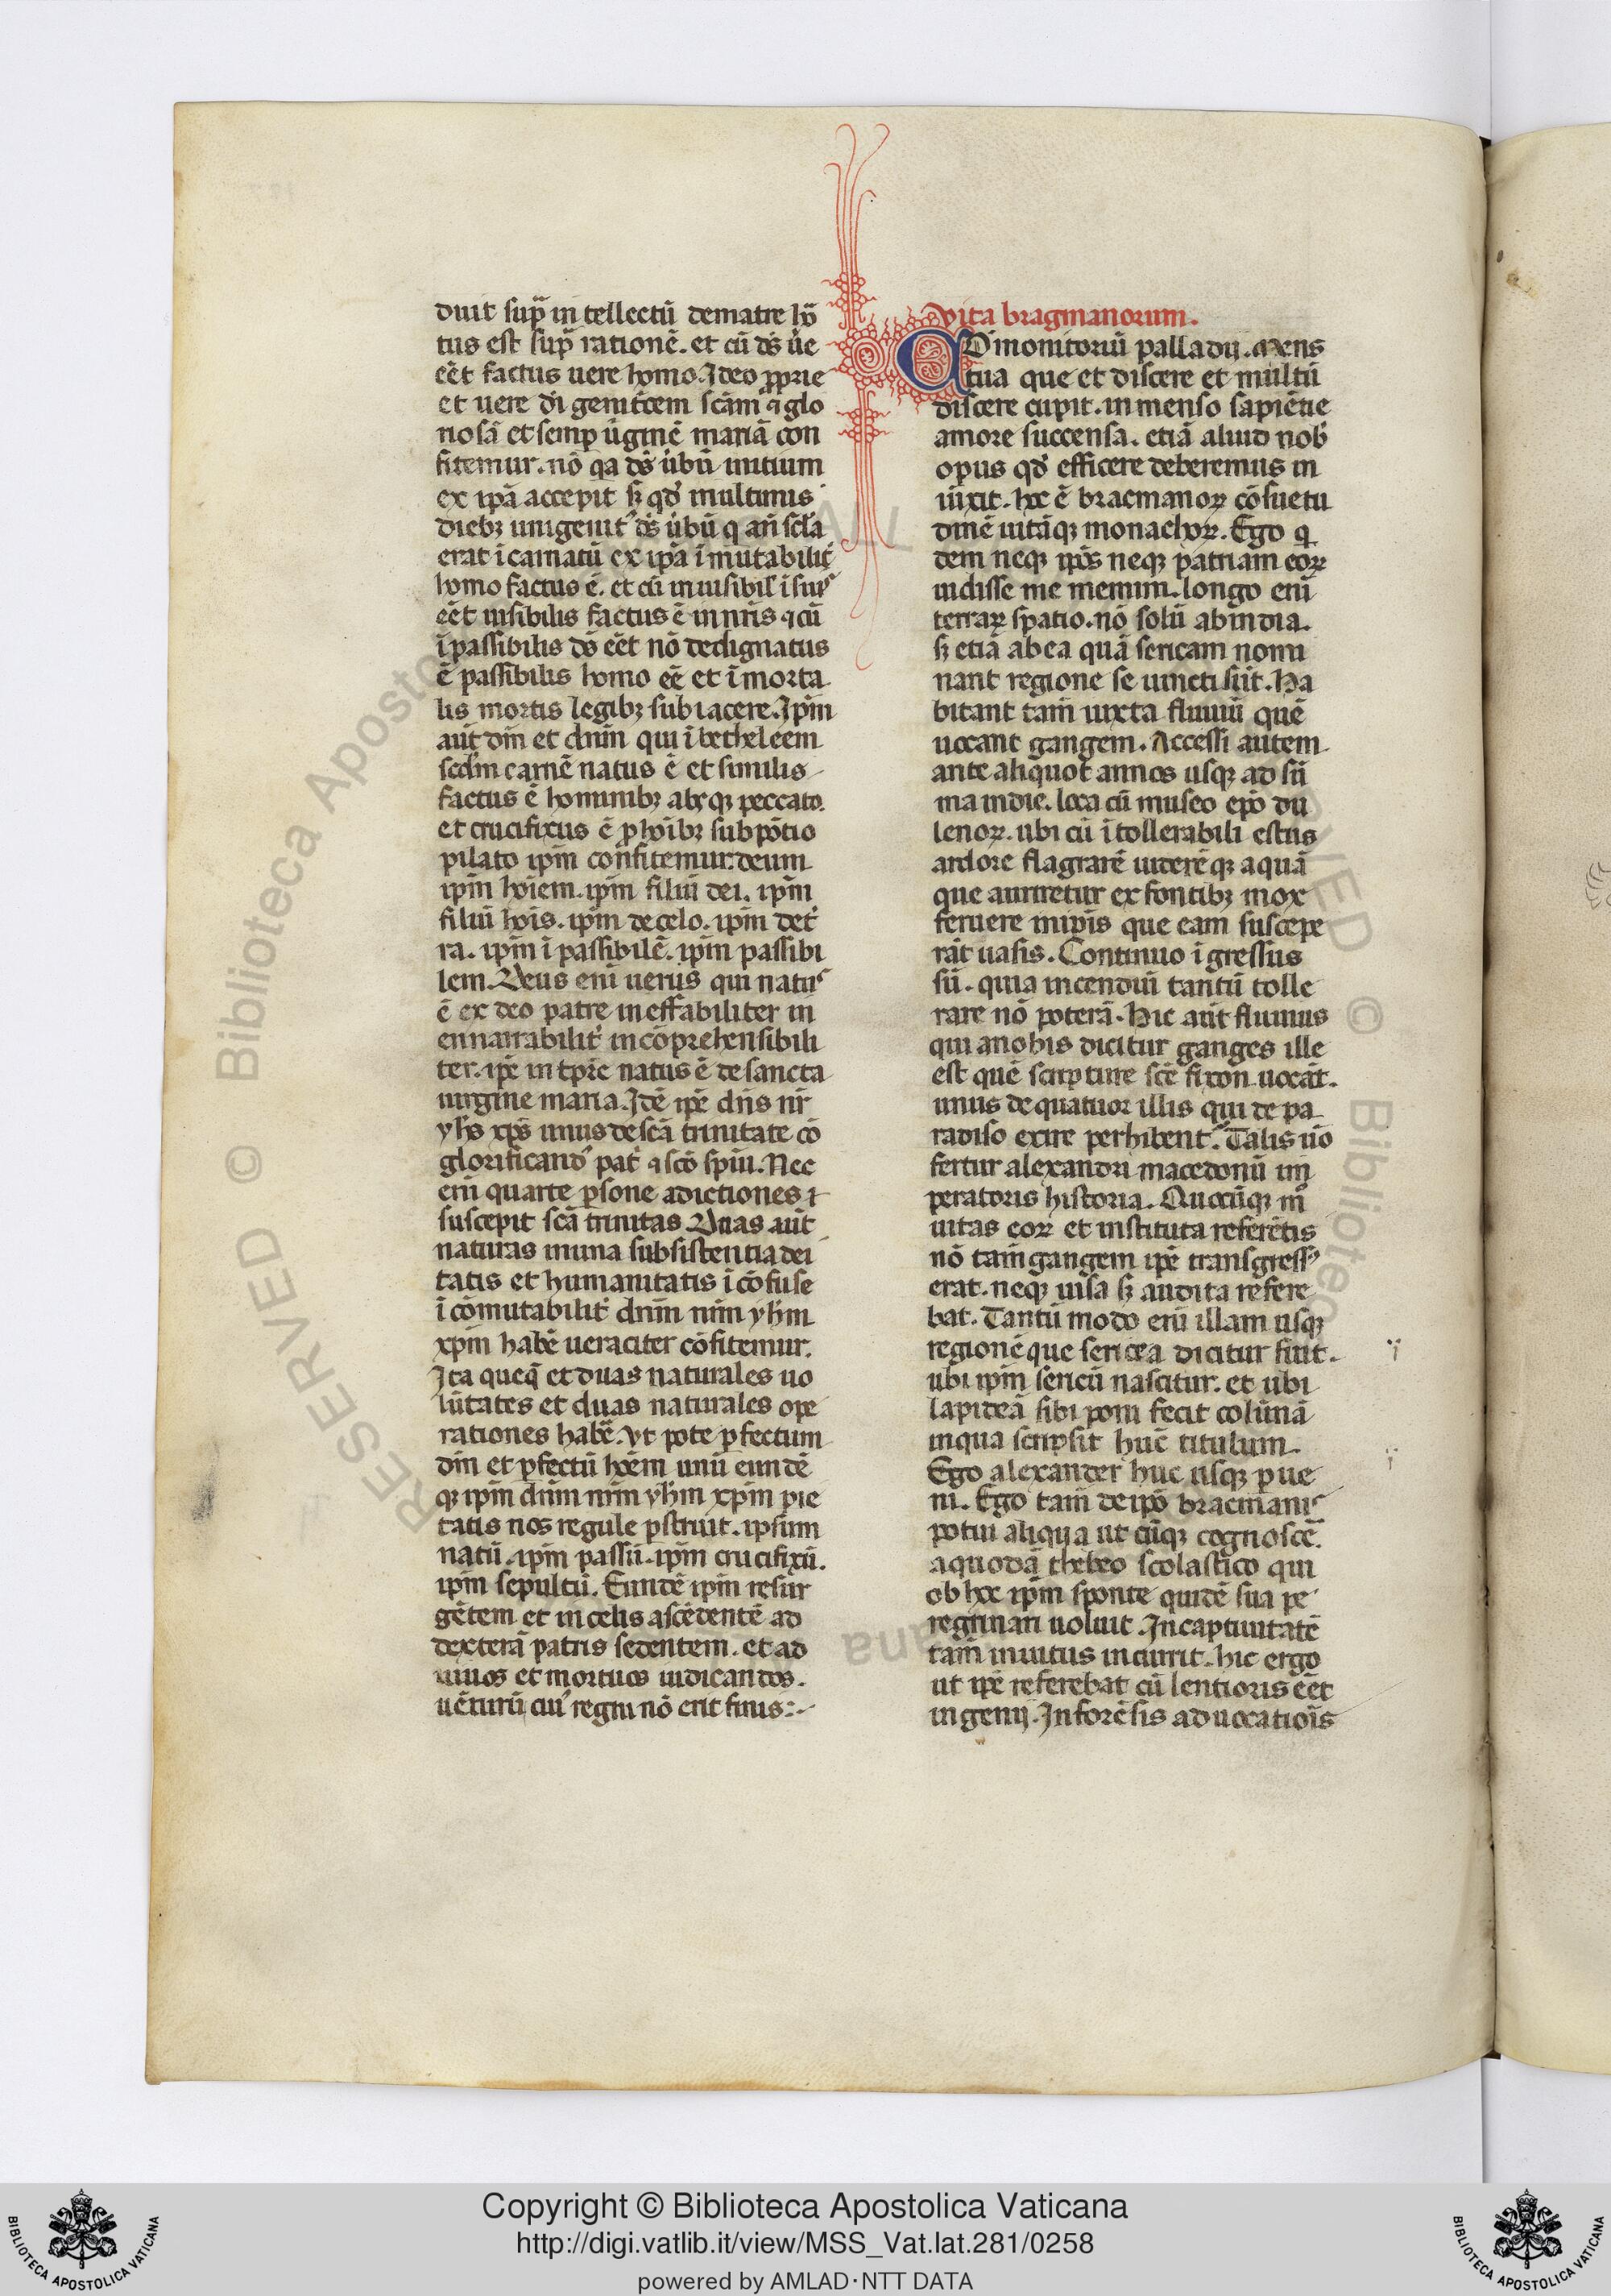 duit sup̄ in tellectū dematre ho᷒
tus est sup̄ rationē. et cū ds̄ ue᷒
eēt factus uere homo. Ideo ꝓprie
et uere di genit͛cem sc̄am ⁊ glo
riosā et semp̱ u᷒ginē mariā con
fitemur. nō qa ds̄ u᷒bū initium
ex ip̄a accepit sꝫ qd̓ inultimis
diebꝫ unigenit᷒ ds̄ u᷒bū q an̄ scl̄a
erat i carnatū ex ip̄a īmutabilit᷒
homo factus ē. et cū inuisibil᷒ i suis
eēt uisibilis factus ē in nr̄is ⁊ cū
īpassibilis ds̄ eēt nō dedignatus
ē passibilis homo eē et īmorta
lis mortis legibꝫ sub iacere. Ip̄m
aūt dm̄ et dn̄m qui ībetheleem
scd̄m carnē natus ē et similis
factus ē hominibꝫ absqꝫ peccato.
et crucifixus ē ꝑ hoi᷒bꝫ sub pōtio
pilato ip̄m confitemur deum
ip̄m hoi᷒em. ip̄m filiū dei. ip̄m
filiū hois. ip̄m decelo. ip̄m det᷒
ra. ip̄m īpassibilē. ip̄m passibi
lem. Deus eni uerus qui natus
ē ex deo patre ineffabiliter in
ennarrabilit᷒ incōprehensibili
ter. ip̄e intp̄re natus ē de sancta
uirgine maria. Idē ip̄e dn̄s nr̄
yhs xp̄s unus de scā trinitate cō
glorificand᷒ pat᷒ ⁊ scō spiū. Nec
eni quarte p̱sone adictiones
suscepit scā trinitas Duas aūt
naturas inuna subsistentia dei
tatis et humanitatis īcōfuse
īcōmutabilit᷒ dn̄m nr̄m yhm
xp̄m habē ueraciter cōfitemur.
Ita queq̄ et duas naturales uo
lūtates et duas naturales ope
rationes habē. Vt pote p̱fectum
dm̄ et p̱fectū hoēm unū eundē
qꝫ ip̄m dn̄m nr̄m yhm xp̄m pie
tatis nos regule p̱struit. ipsum
natū. ip̄m passū. ip̄m crucifixū.
ip̄m sepultū. Eundē ip̄m resur
gētem et incelis ascēdentē ad
dexterā patris sedentem. et ad
uiuos et mortuos iudicandos.
uēturū cui᷒ regni nō erit finis:-
Vita bragmanorum.
ADmonitoriū palladii. Mens
tua que et discere et multū
discere cupit. in menso sapiētie
amore succensa. etiā aliud nob̓
opus qd̓ efficere deberemus in
iūxit. hoc ē bracmanoꝝ cōsuetu
dinē uitāqꝫ monachoꝝ. Ego q
dem neqꝫ ip̄os neqꝫ patriam eoꝝ
uidisse me memini. longo eni
terraꝝ spatio. nō solū abindia.
sꝫ etiā abea quā sericam nomi
nant regione se iuncti sūt. Ha
bitant tam̄ iuxta fluuiū quē
uocant gangem. Accessi autem
ante aliquot annos usqꝫ ad sū
ma indie. loca cū museo epō du
lenoꝝ. ubi cū ītollerabili estus
ardore flagrarē uiderēqꝫ aquā
que auriretur ex fontibꝫ mox
feruere inip̄is que eam suscepe
rāt uasis. Continuo i gressus
sū. quia incendiū tantū tolle
rare nō poterā. Hic aūt fluuius
qui anobis dicitur ganges ille
est quē scripture scē fixon uocāt.
unus de quatuor illis qui de pa
radiso exire perhibent᷒. Talis uō
fertur alexandri macedonū im
peratoris historia. Quocūqꝫ mō
uitas eoꝝ et instituta referētis
nō tam̄ gangem ip̄e transgress᷒
erat. neqꝫ uisa sꝫ audita refere
bat. Tantū modo eni illam usqꝫ
regionē que sericea dicitur fuit.
ubi ip̄m sericū nascitur. et ubi
lapideā sibi poni fecit colūnā
inqua scripsit hūc titulum.
Ego alexander huc usqꝫ p̱ue
ni. Ego tam̄ deip̄o bracmanis
potui aliqua ut cūqꝫ cognoscē.
aquodā thebeo scolastico qui
ob hoc ip̄m sponte quidē sua pe
regrinari uoluit. Incaptiuitatē
tam̄ inuitus incurrit. hic ergo
ut ip̄e referebat cū lentioris eēt
ingenij. Inforēsis aduocatiois
Copyright © Biblioteca Apostolica Vaticana
http://digi.vatlib.it/view/MSS_Vat.lat.281/0258
powered by AMLAD·NTT DATA
BIBLIOTECA APOSTOLICA VATICANA
BIBLIOTECA APOSTOLICA VATICANA